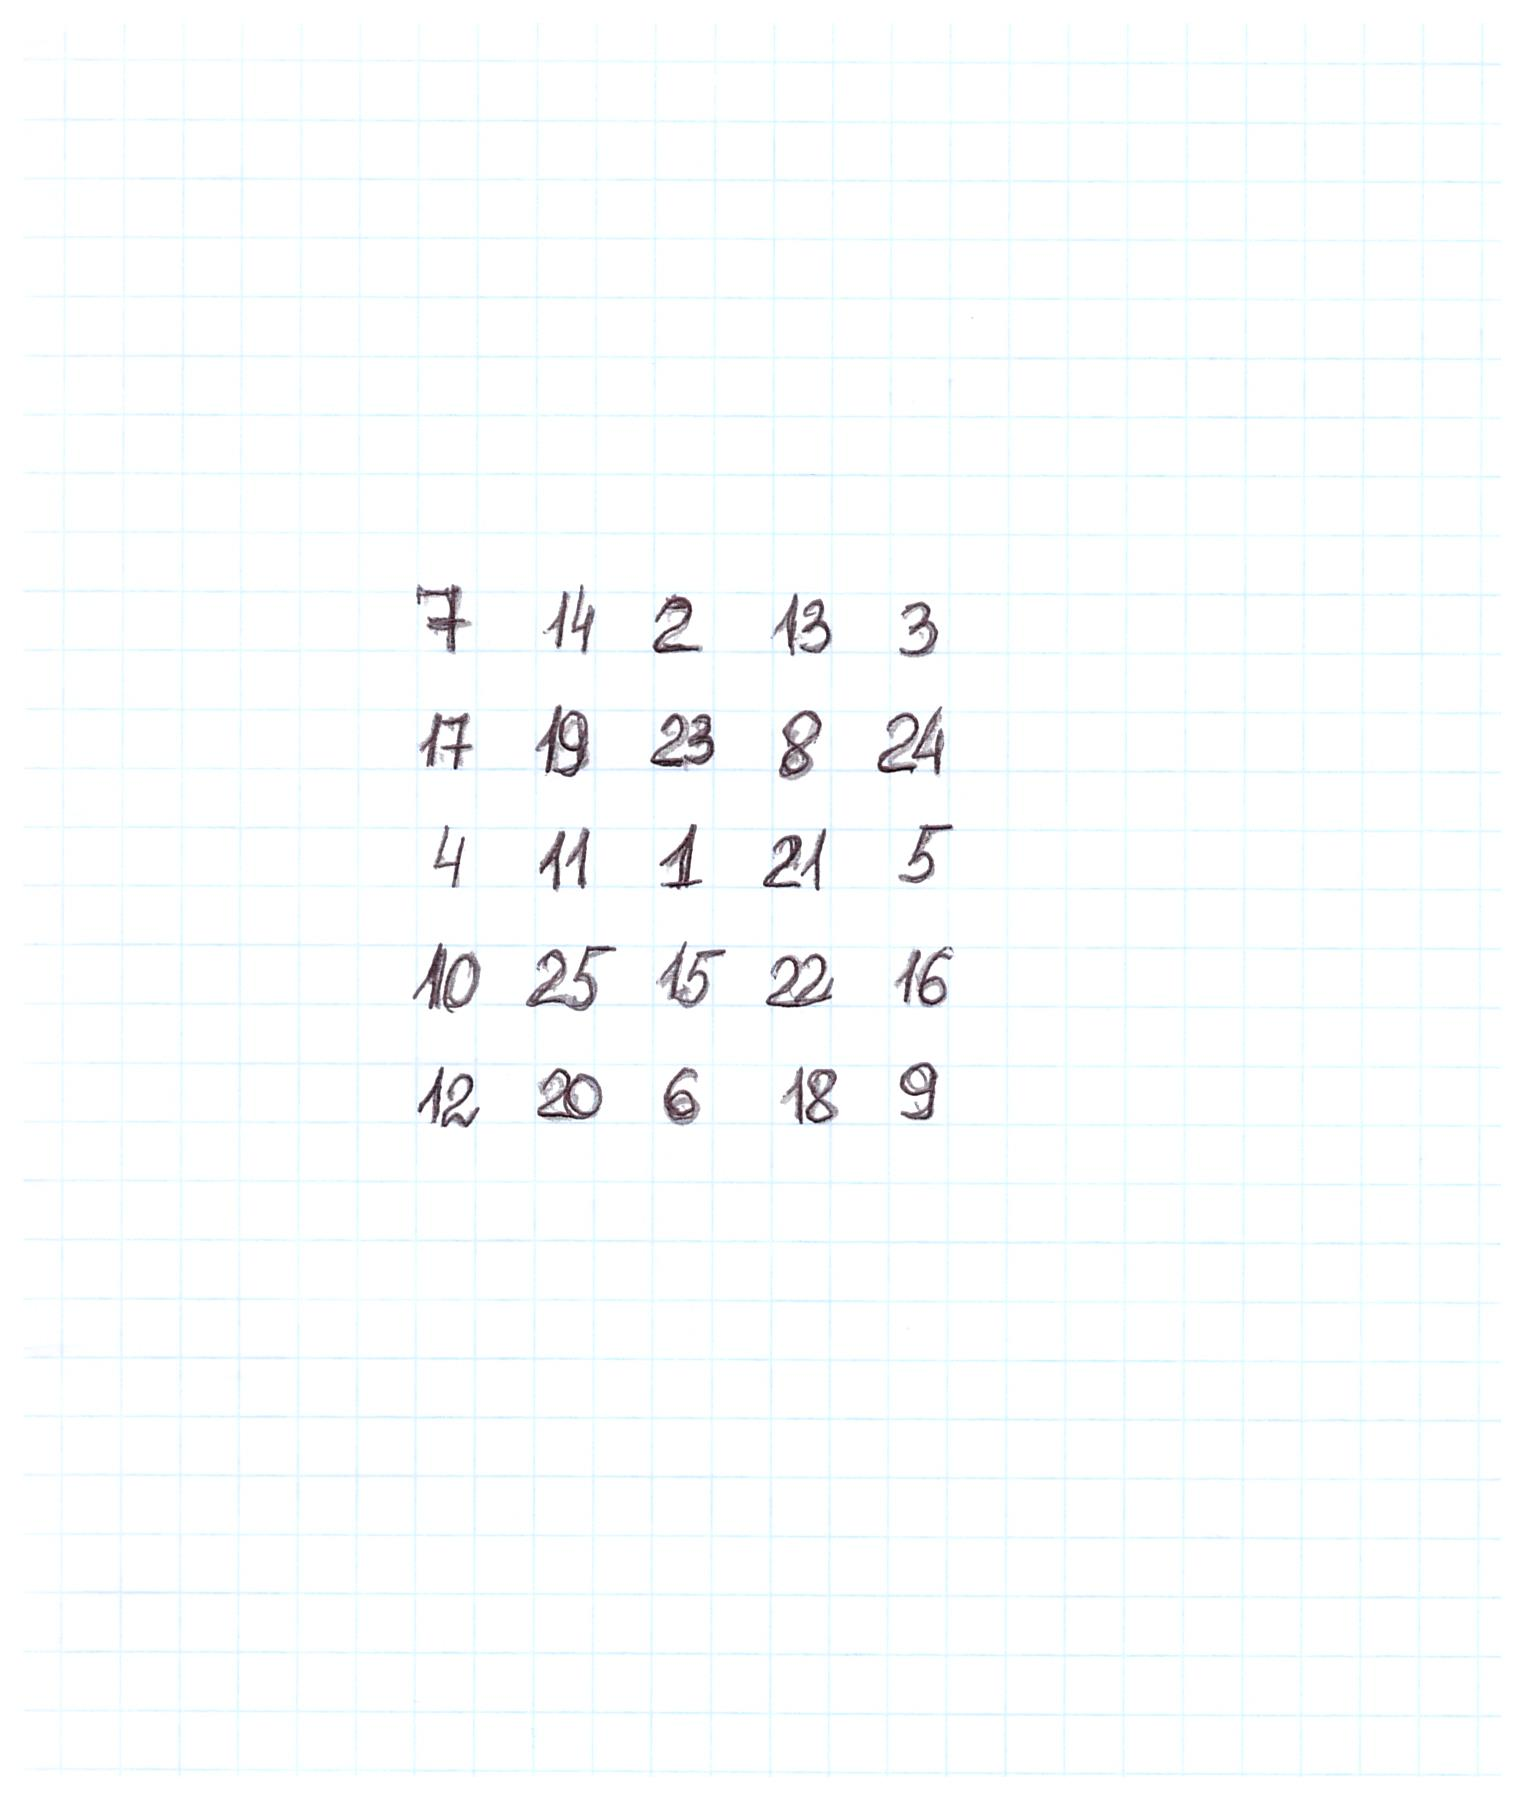 7 14 2 13 3
17 19 23 8 24
4 11 1 21 5
10 25 15 22 16
12 20 6 18 9